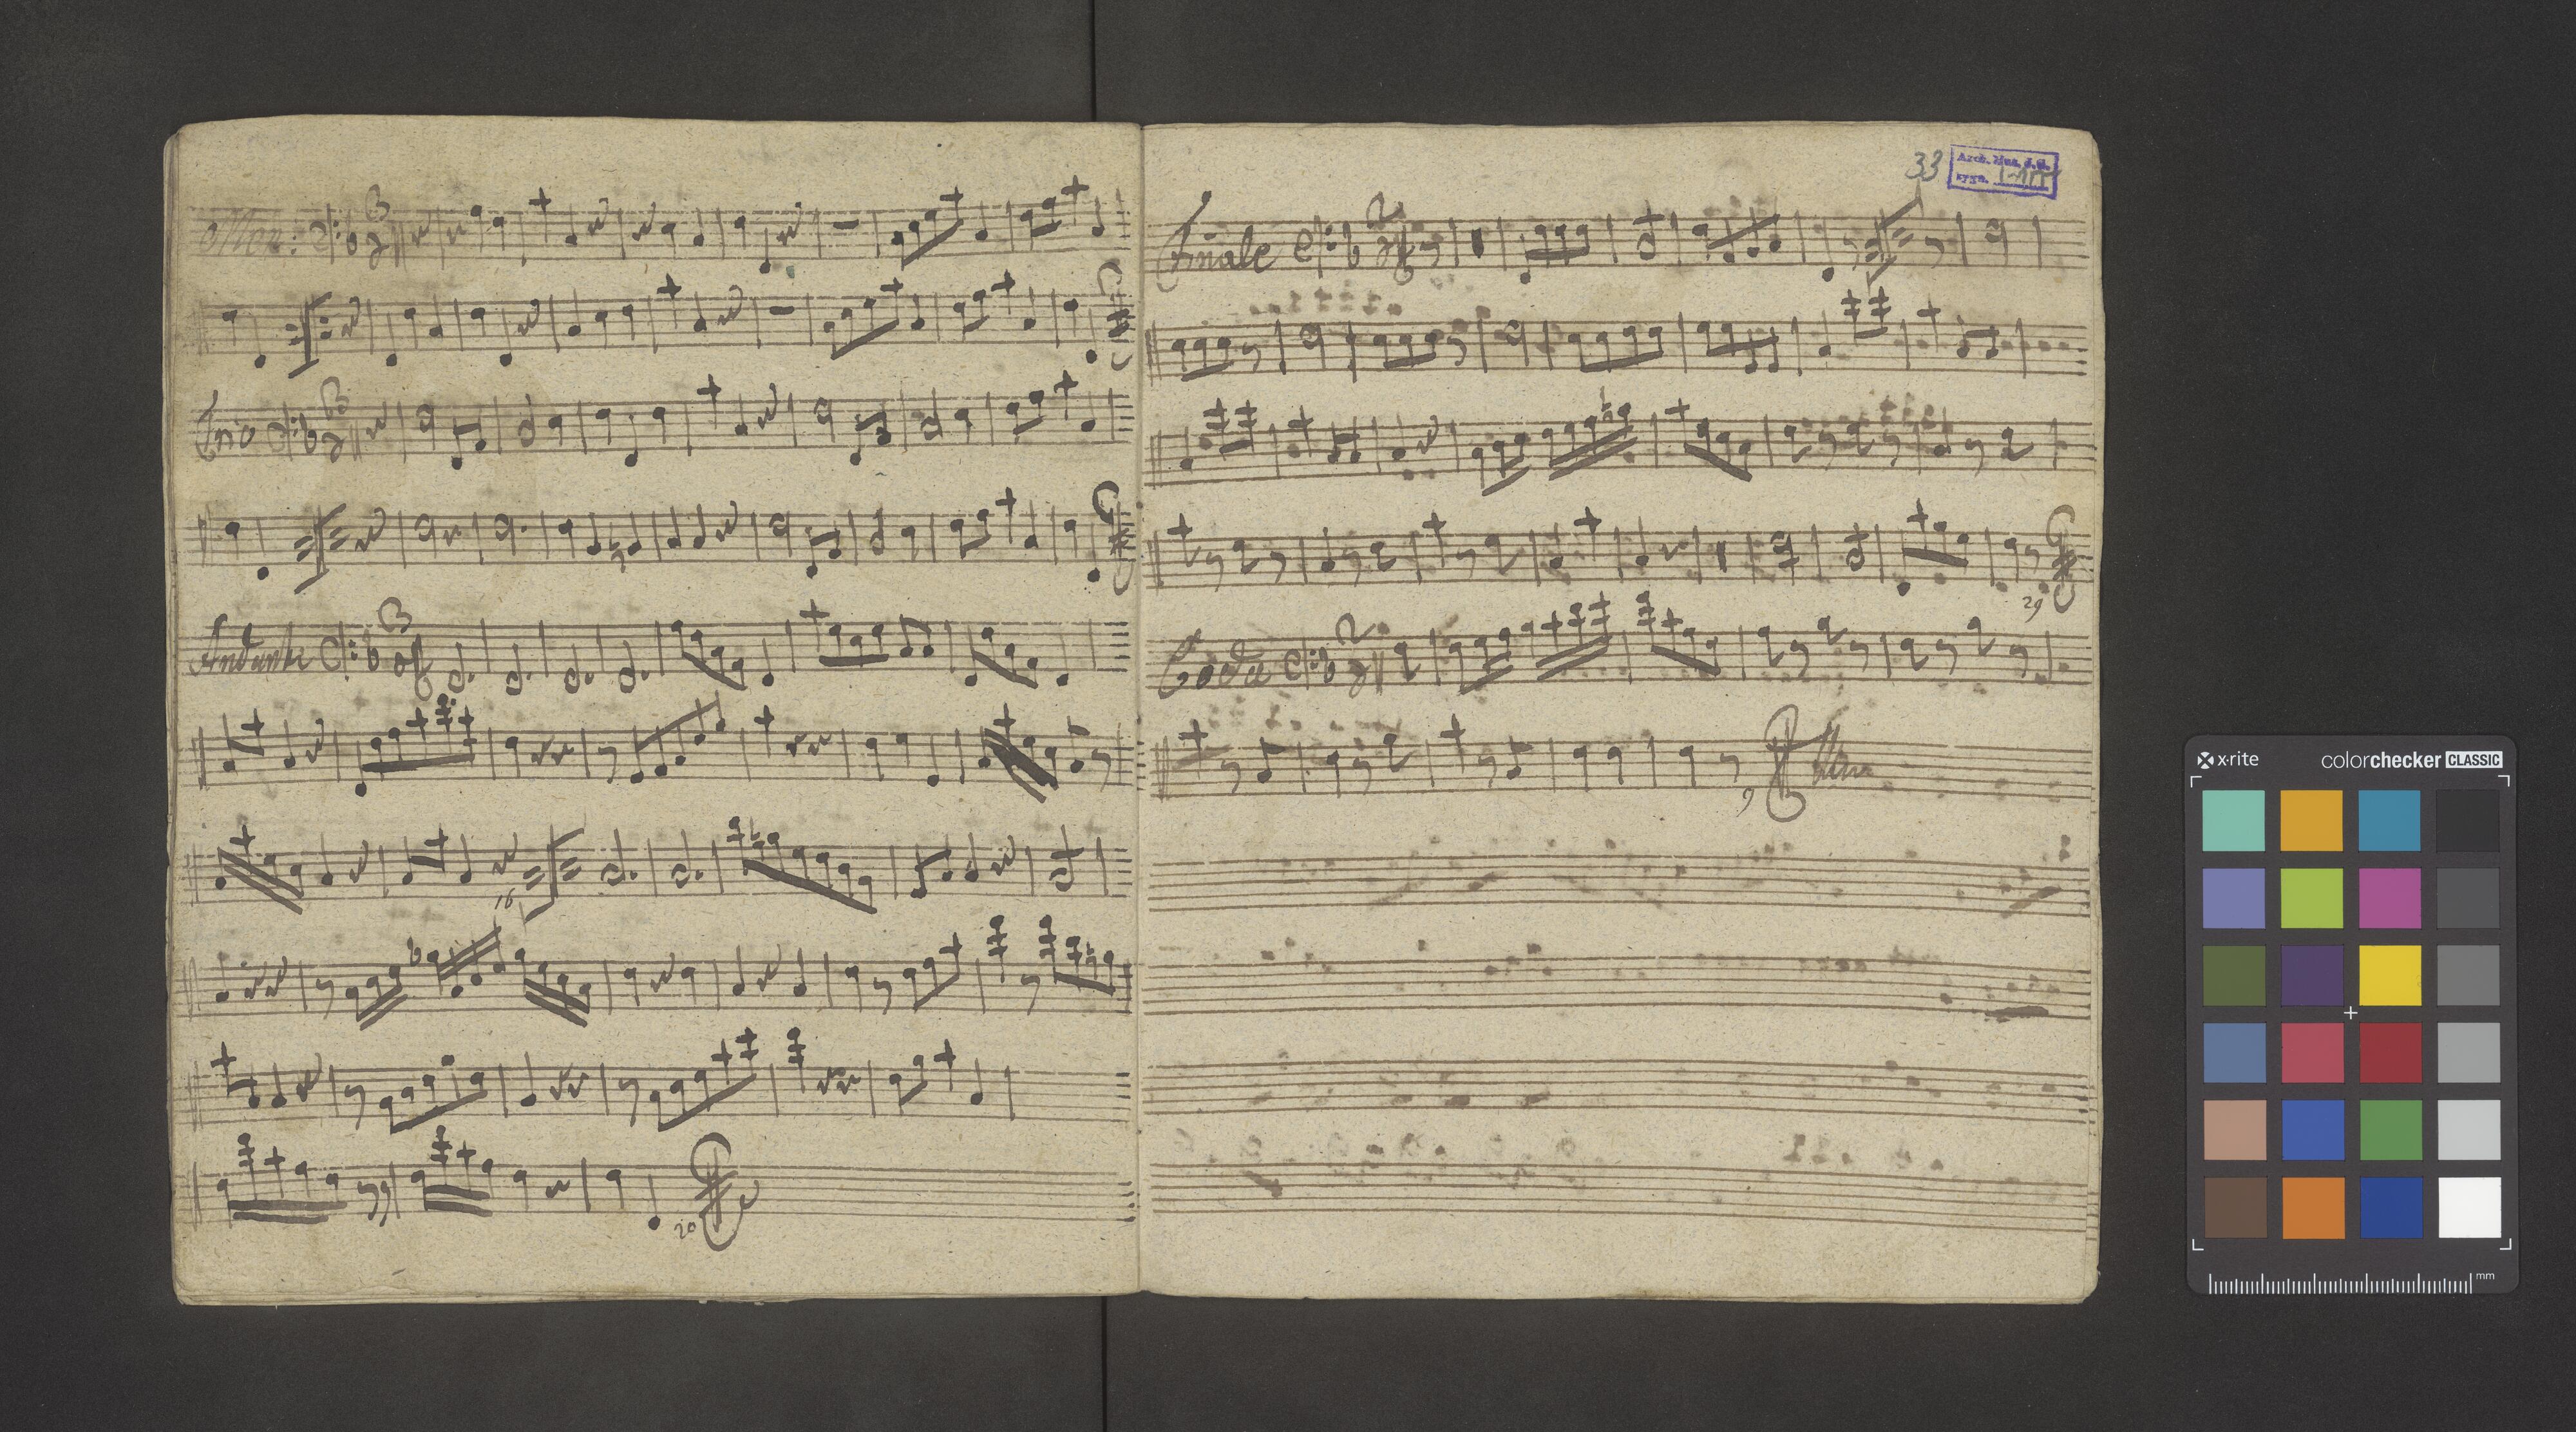 Men:
Trio
Andante
16
20
33
Arch. Mus. J.G.
sygn.
Finale
29
Coda
9
x·rite
colorchecker CLASSIC
mm